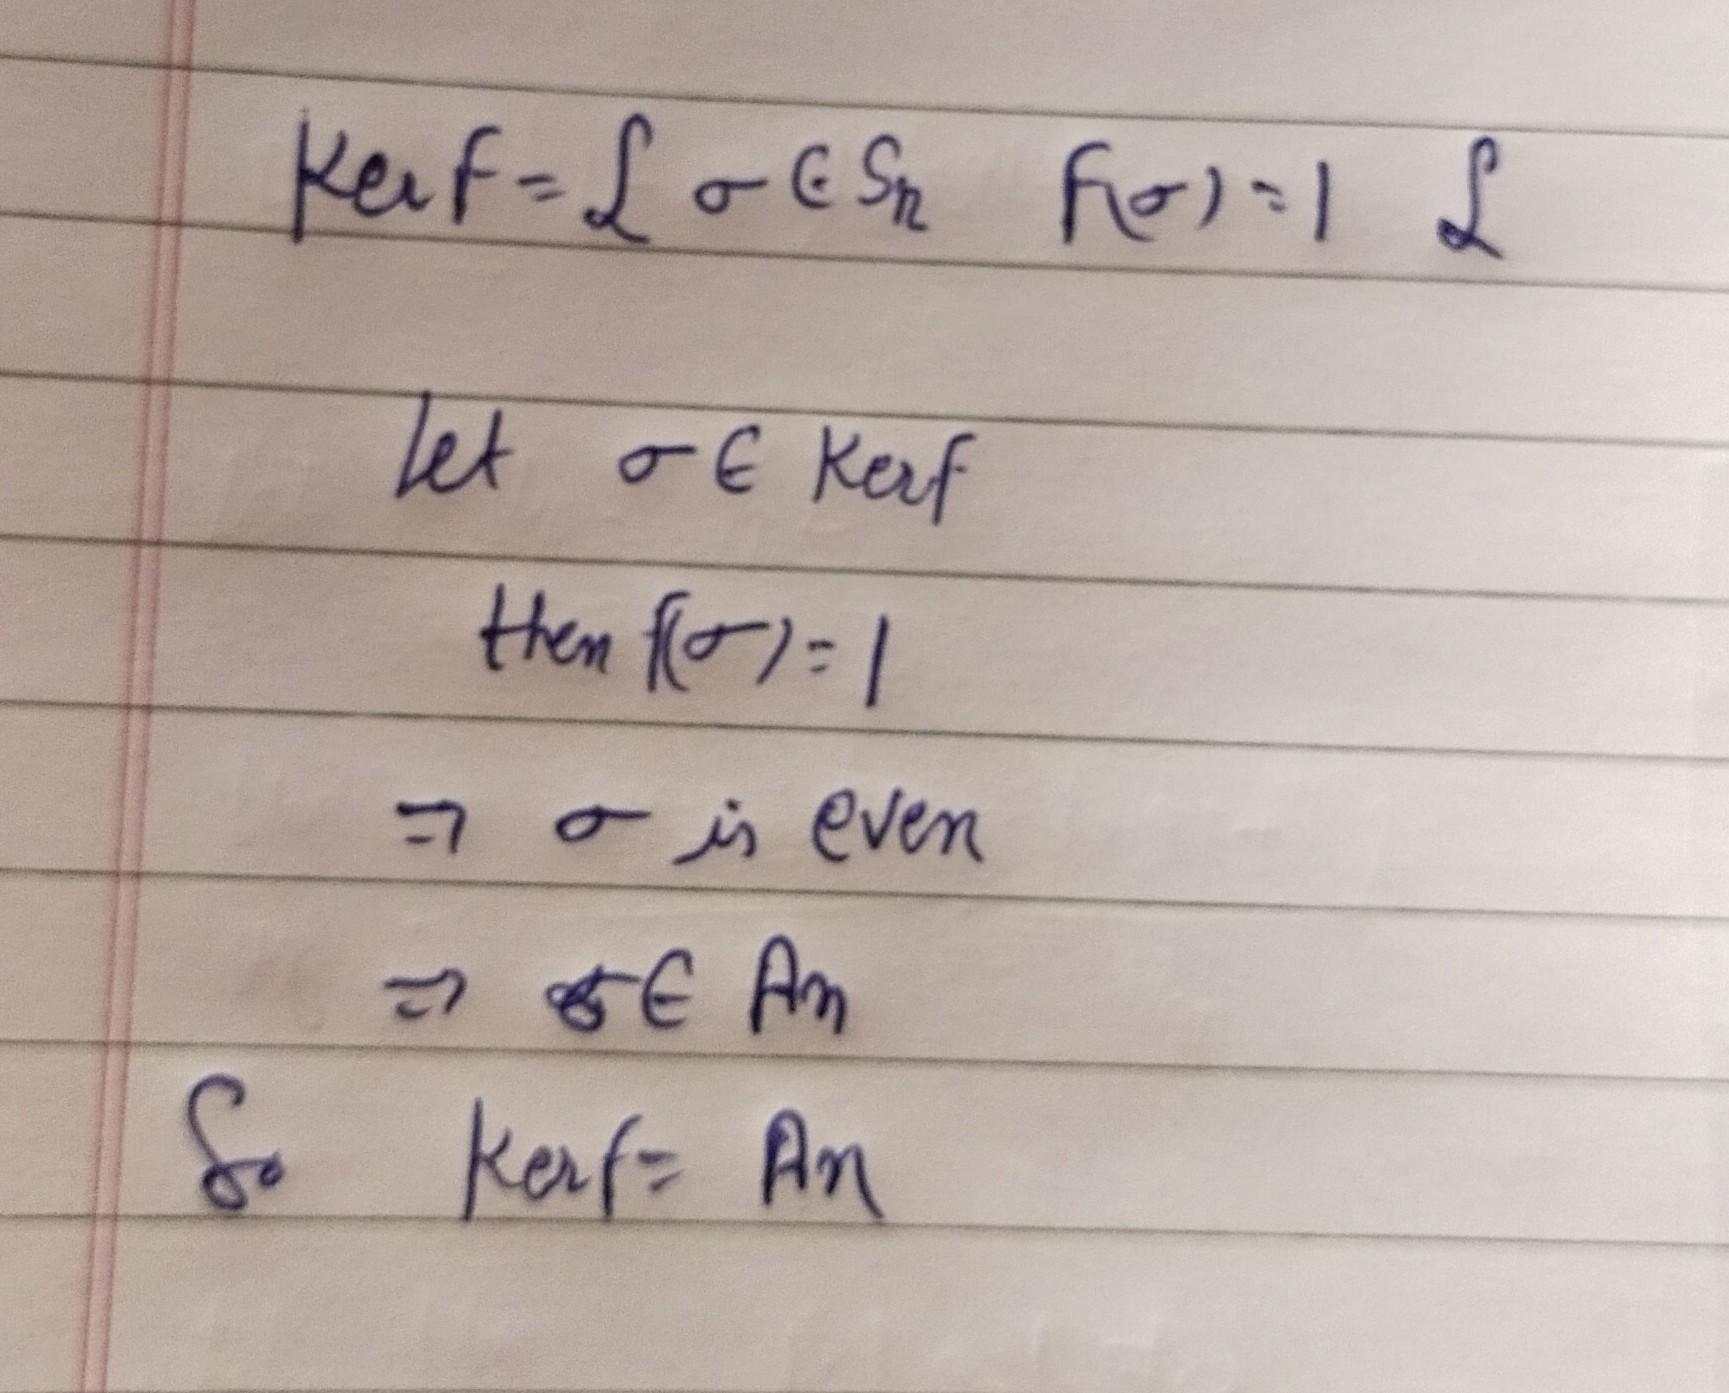 Kerf = { σ ∈ Sn f(σ) = 1 }
let σ ∈ Kerf
then f(σ) = 1
⇒ σ is even
⇒ σ ∈ An
So Kerf = An